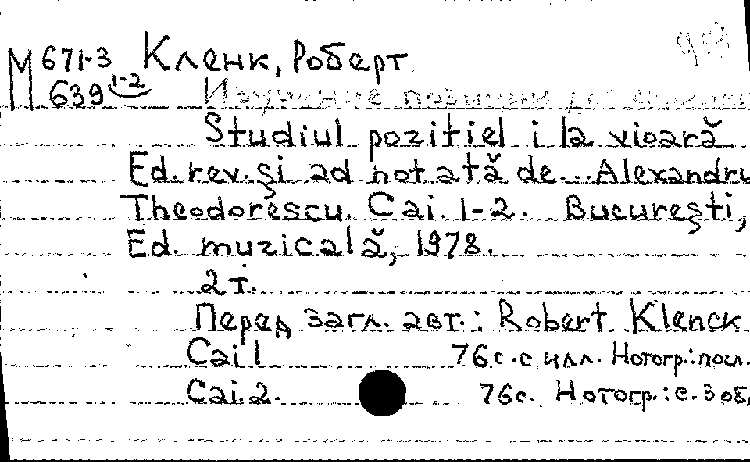 М 671-3 Кленк, Роберт
639 1-2 Изучение позиции
Studiul pozitiei i la vioară
Ed. rev. şi ad notată de... Alexandru
Theodorescu. Cai. 1-2. Bucureşti,
Ed. muzicală, 1978.
2 т.
Перед загл. авт.: Robert Klenck
Cai 1 76 с. с илл. Нотогр.: посл.
Cai. 2. 76с. Нотогр.: с. 3 об.